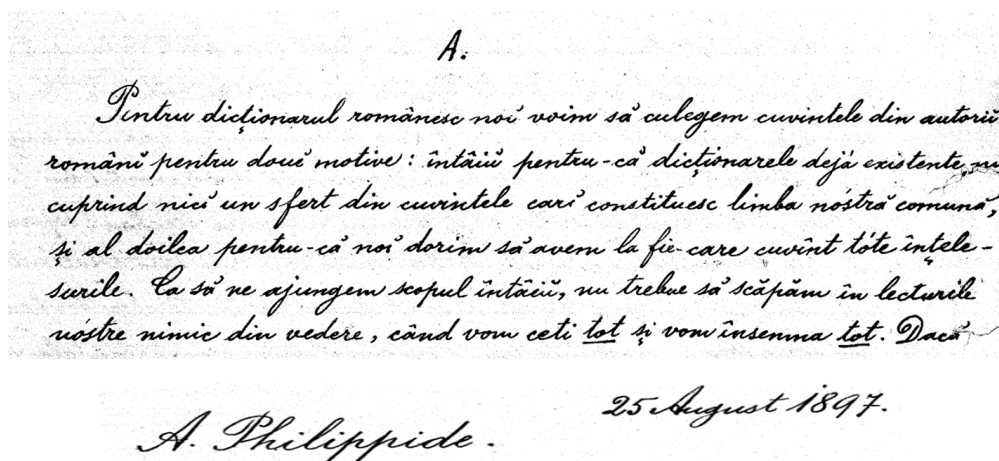 A.
Pentru dicționarul românesc noĭ voim să culegem cuvintele din autoriĭ
românĭ pentru doué motive: întâiŭ pentru-că dicționarele dejá existente nu
cuprind nicĭ un sfert din cuvintele carĭ constituesc limba nóstră comună,
și al doilea pentru-că noĭ dorim să avem la fie-care cuvînt tóte înțele-
surile. Ca să ne ajungem scopul întâiŭ, nu trebue să scăpăm în lecturile
nóstre nimic din vedere, când vom ceti tot și vom însemna tot. Dacă
25 August 1897.
A. Philippide.